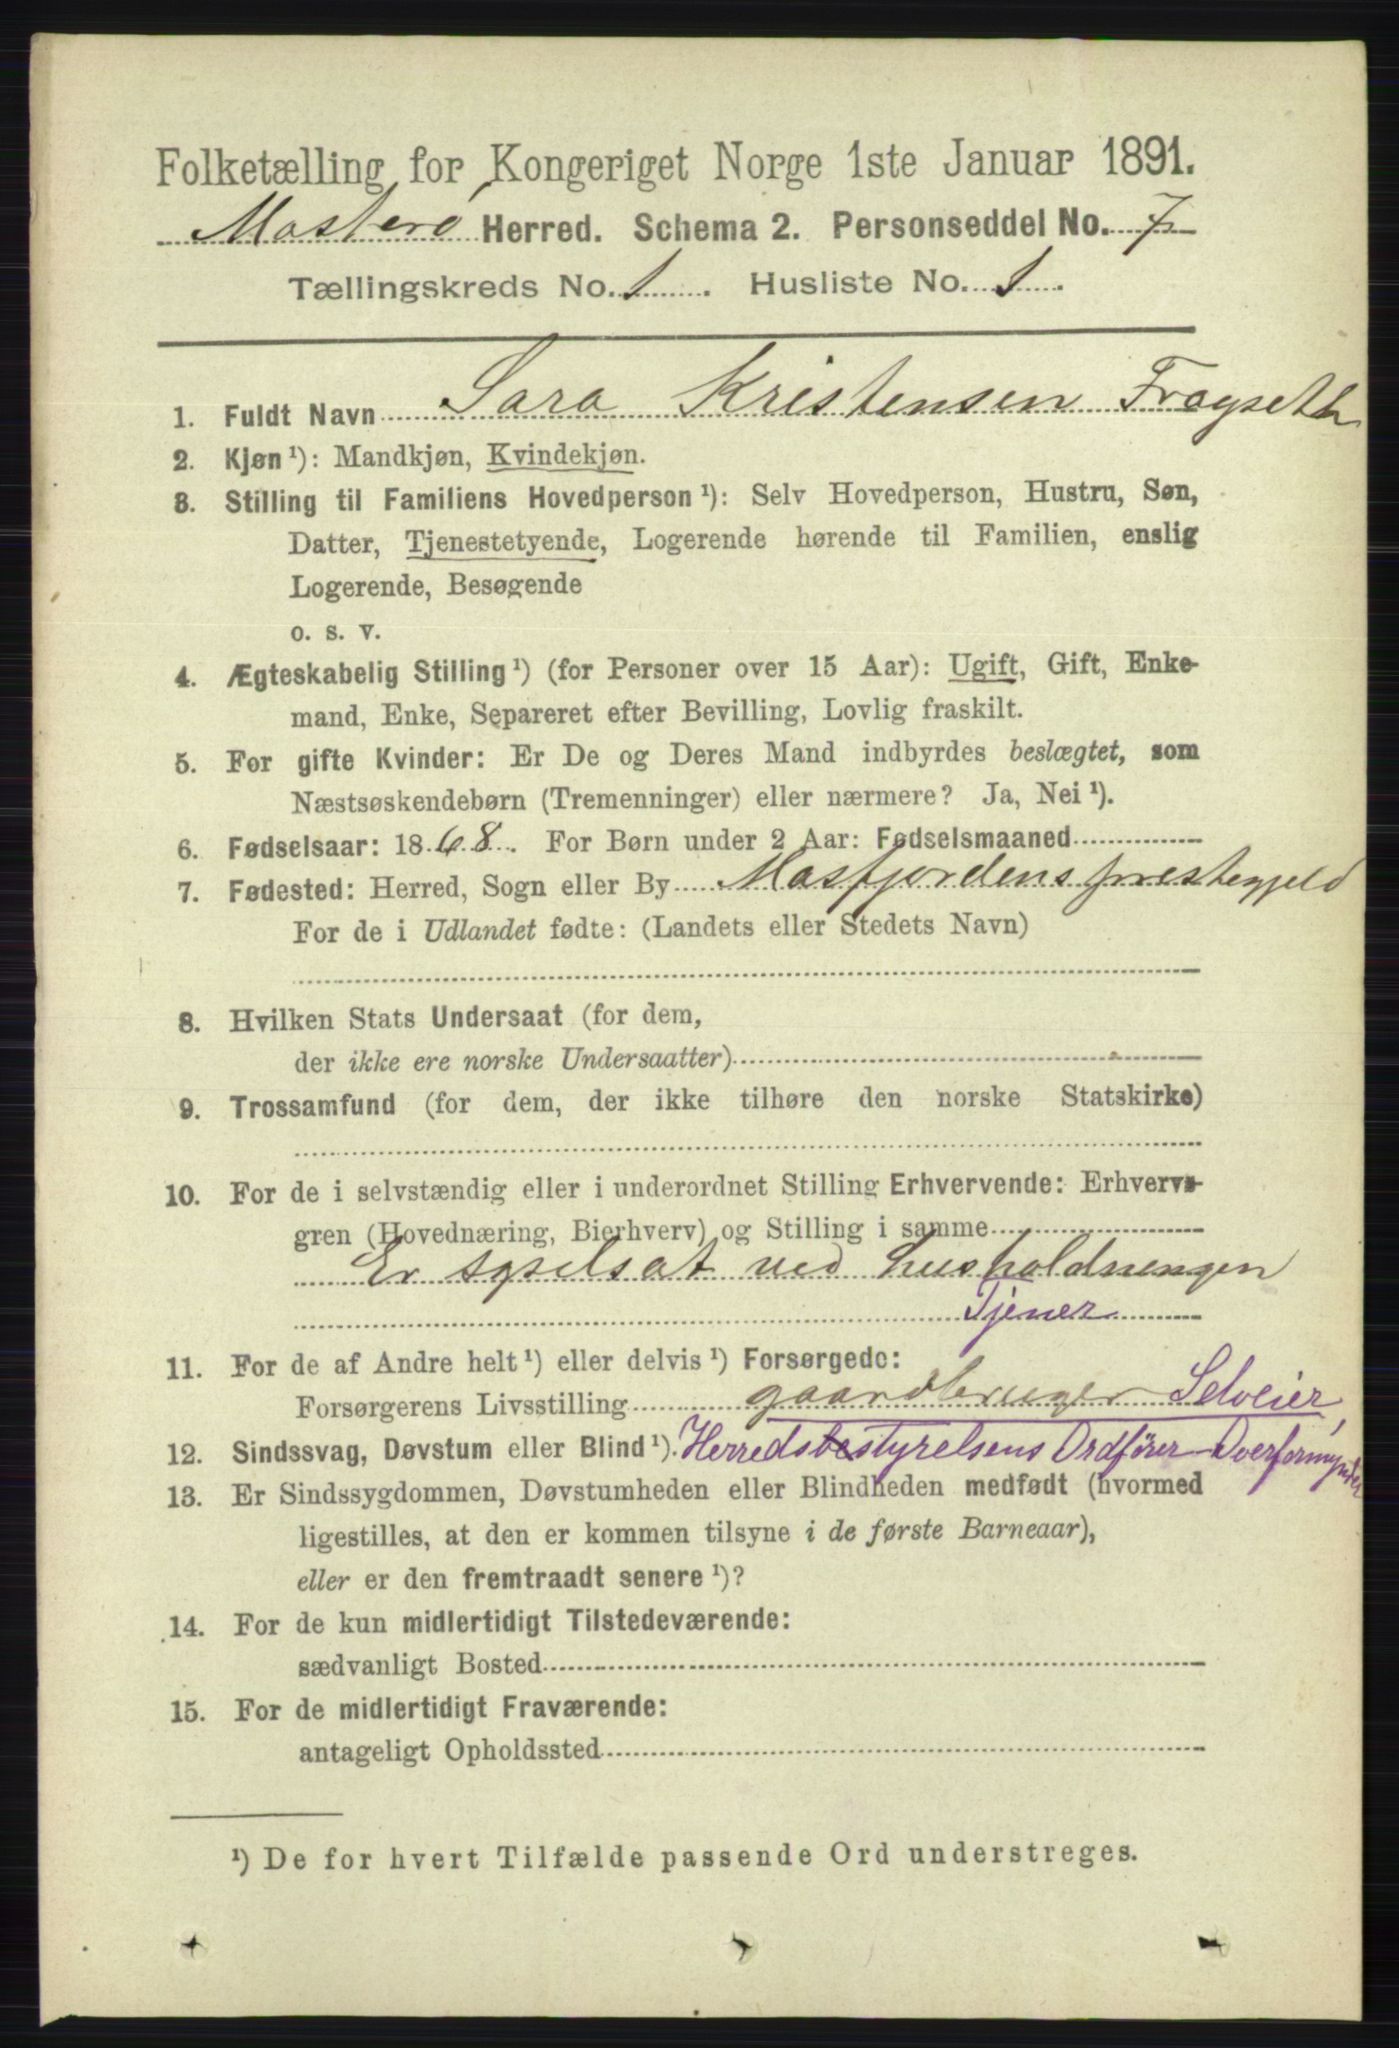 Folketælling for Kongeriget Norge 1ste Januar 1891.
Masterö Herred. Schema 2. Personseddel No. 7
Tællingskreds No. 1. Husliste No. 1.
1. Fuldt Navn Sara Kristensen Frøyseth
2. Kjøn ¹): Mandkjøn, Kvindekjøn.
3. Stilling til Familiens Hovedperson ¹): Selv Hovedperson, Hustru, Søn,
Datter, Tjenestetyende, Logerende hørende til Familien, enslig
Logerende, Besøgende
o. s. v.
4. Ægteskabelig Stilling ¹) (for Personer over 15 Aar): Ugift, Gift, Enke-
mand, Enke, Separeret efter Bevilling, Lovlig fraskilt.
5. For gifte Kvinder: Er De og Deres Mand indbyrdes beslægtet, som
Næstsøskendebørn (Tremenninger) eller nærmere? Ja, Nei ¹).
6. Fødselsaar: 1868. For Børn under 2 Aar: Fødselsmaaned
7. Fødested: Herred, Sogn eller By Masfjordens prestegjeld
For de i Udlandet fødte: (Landets eller Stedets Navn)
8. Hvilken Stats Undersaat (for dem,
der ikke ere norske Undersaatter)
9. Trossamfund (for dem, der ikke tilhøre den norske Statskirke)
10. For de i selvstændig eller i underordnet Stilling Erhvervende: Erhvervs-
gren (Hovednæring, Bierhverv) og Stilling i samme
Er syselsat ved husholdningen
Tjener
11. For de af Andre helt ¹) eller delvis ¹) Forsørgede:
Forsørgerens Livsstilling gaardbruger Selveier,
12. Sindssvag, Døvstum eller Blind ¹). Herredsbestyrelsens Ordfører Overformynder
13. Er Sindssygdommen, Døvstumheden eller Blindheden medfødt (hvormed
ligestilles, at den er kommen tilsyne i de første Barneaar),
eller er den fremtraadt senere ¹)?
14. For de kun midlertidigt Tilstedeværende:
sædvanligt Bosted
15. For de midlertidigt Fraværende:
antageligt Opholdssted
¹) De for hvert Tilfælde passende Ord understreges.